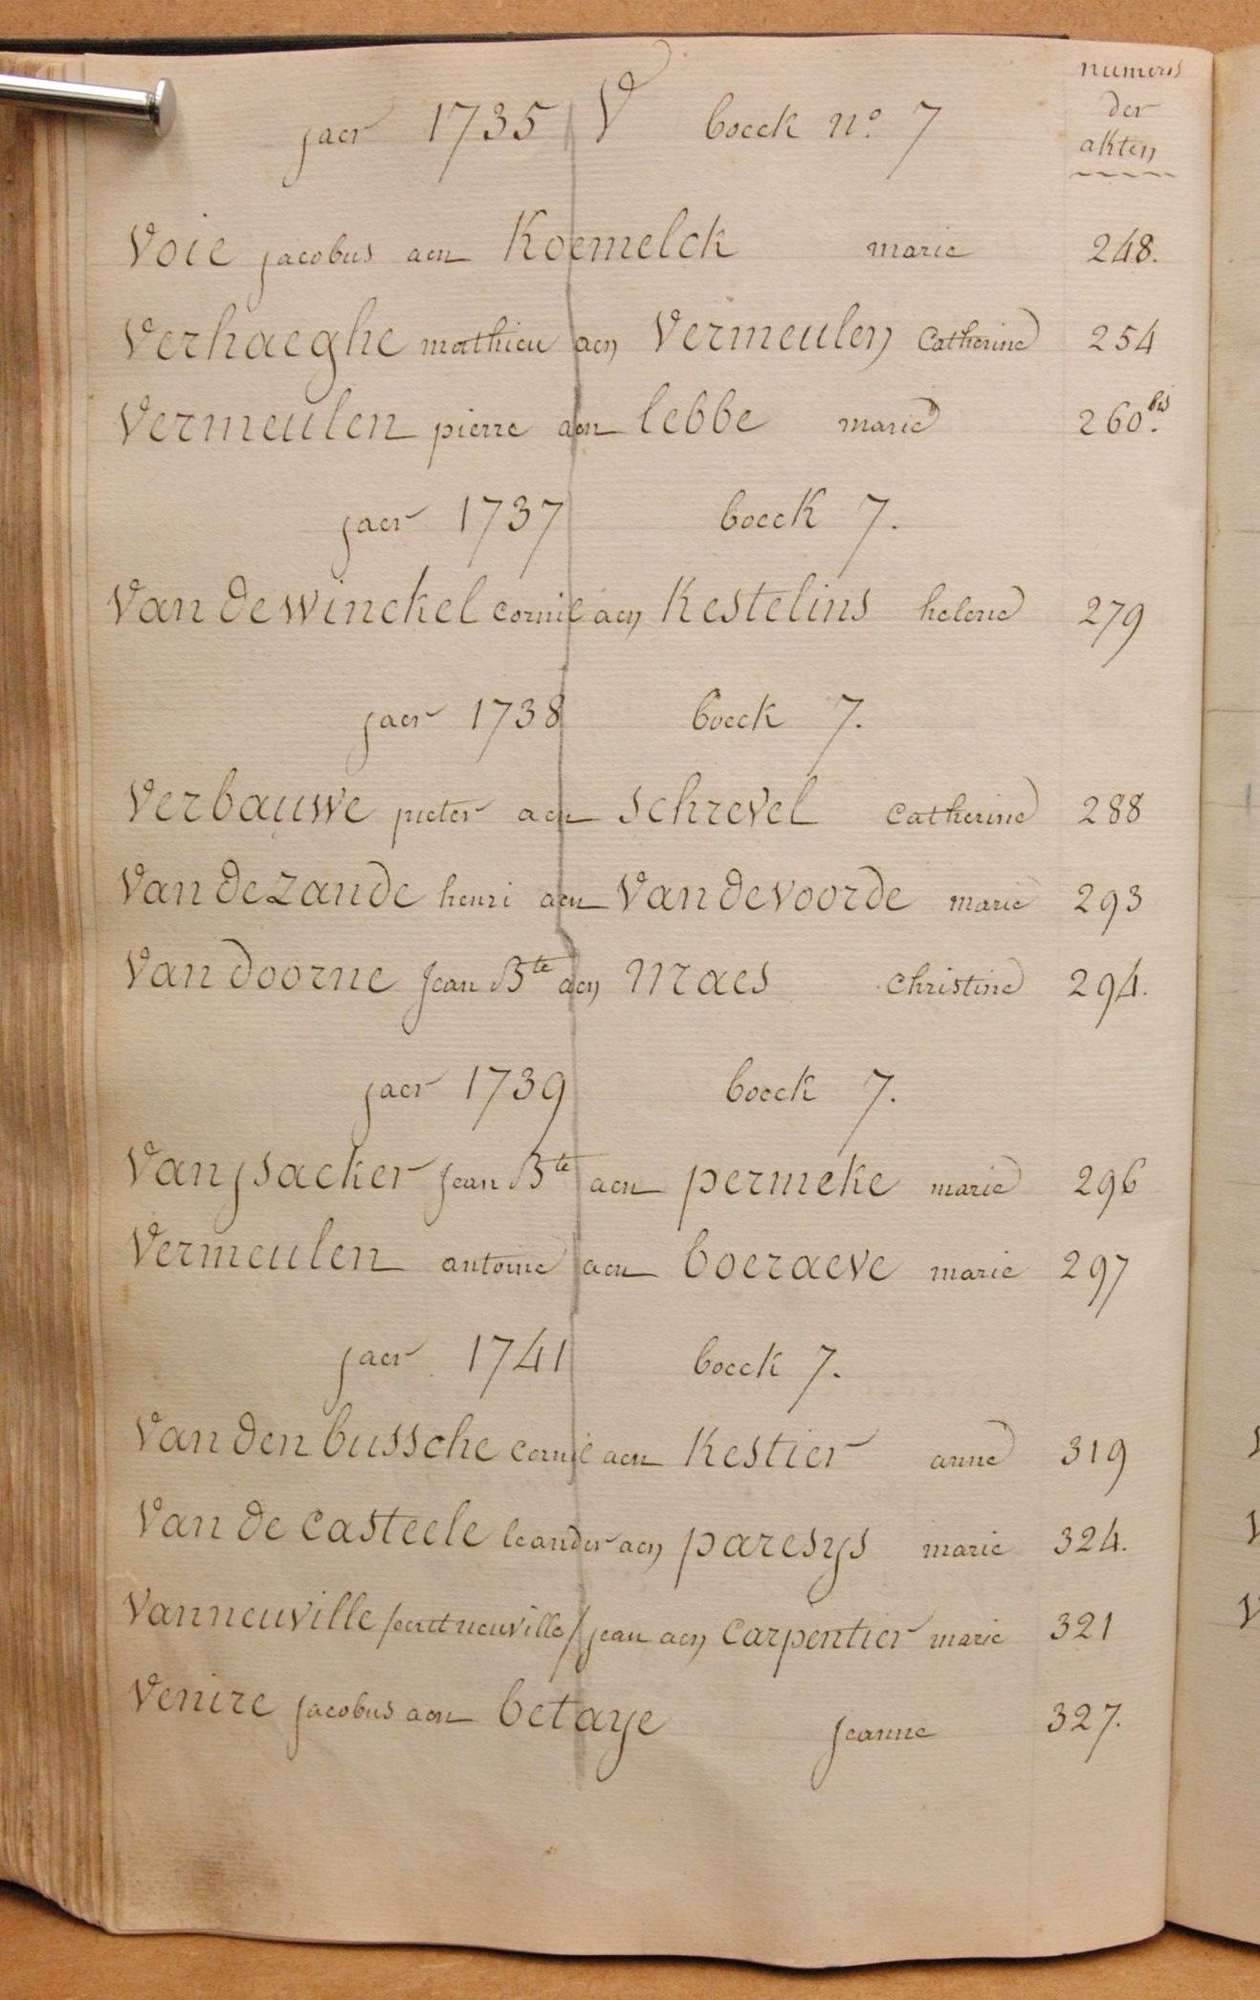 jaer 1735 V boeck n.o 7
numeros
der
akten
Voie jacobus aen Koemelck marie 248.
Verhaeghe mathieu aen Vermeulen Catherine 254
Vermeulen pierre aen lebbe marie 260.bis
jaer 1737 boeck 7.
Van de winckel cornil aen Kestelins helene 279
jaer 1738 boeck 7.
Verbauwe pieter aen schrevel Catherine 288
Van de zande henri aen Van de voorde marie 293
Van doorne Jean Bte aen Maes Christine 294.
jaer 1739 boeck 7.
Van jsacker Jean Bte aen permeke marie 296
Vermeulen antoine aen boeraeve marie 297
jaer 1741 boeck 7.
Van den bussche cornil aen Kestier anne 319
Van de casteele leander aen paresys marie 324.
Vanneuville / neuville / jean aen Carpentier marie 321
Venire jacobus aen betaye Jeanne 327.